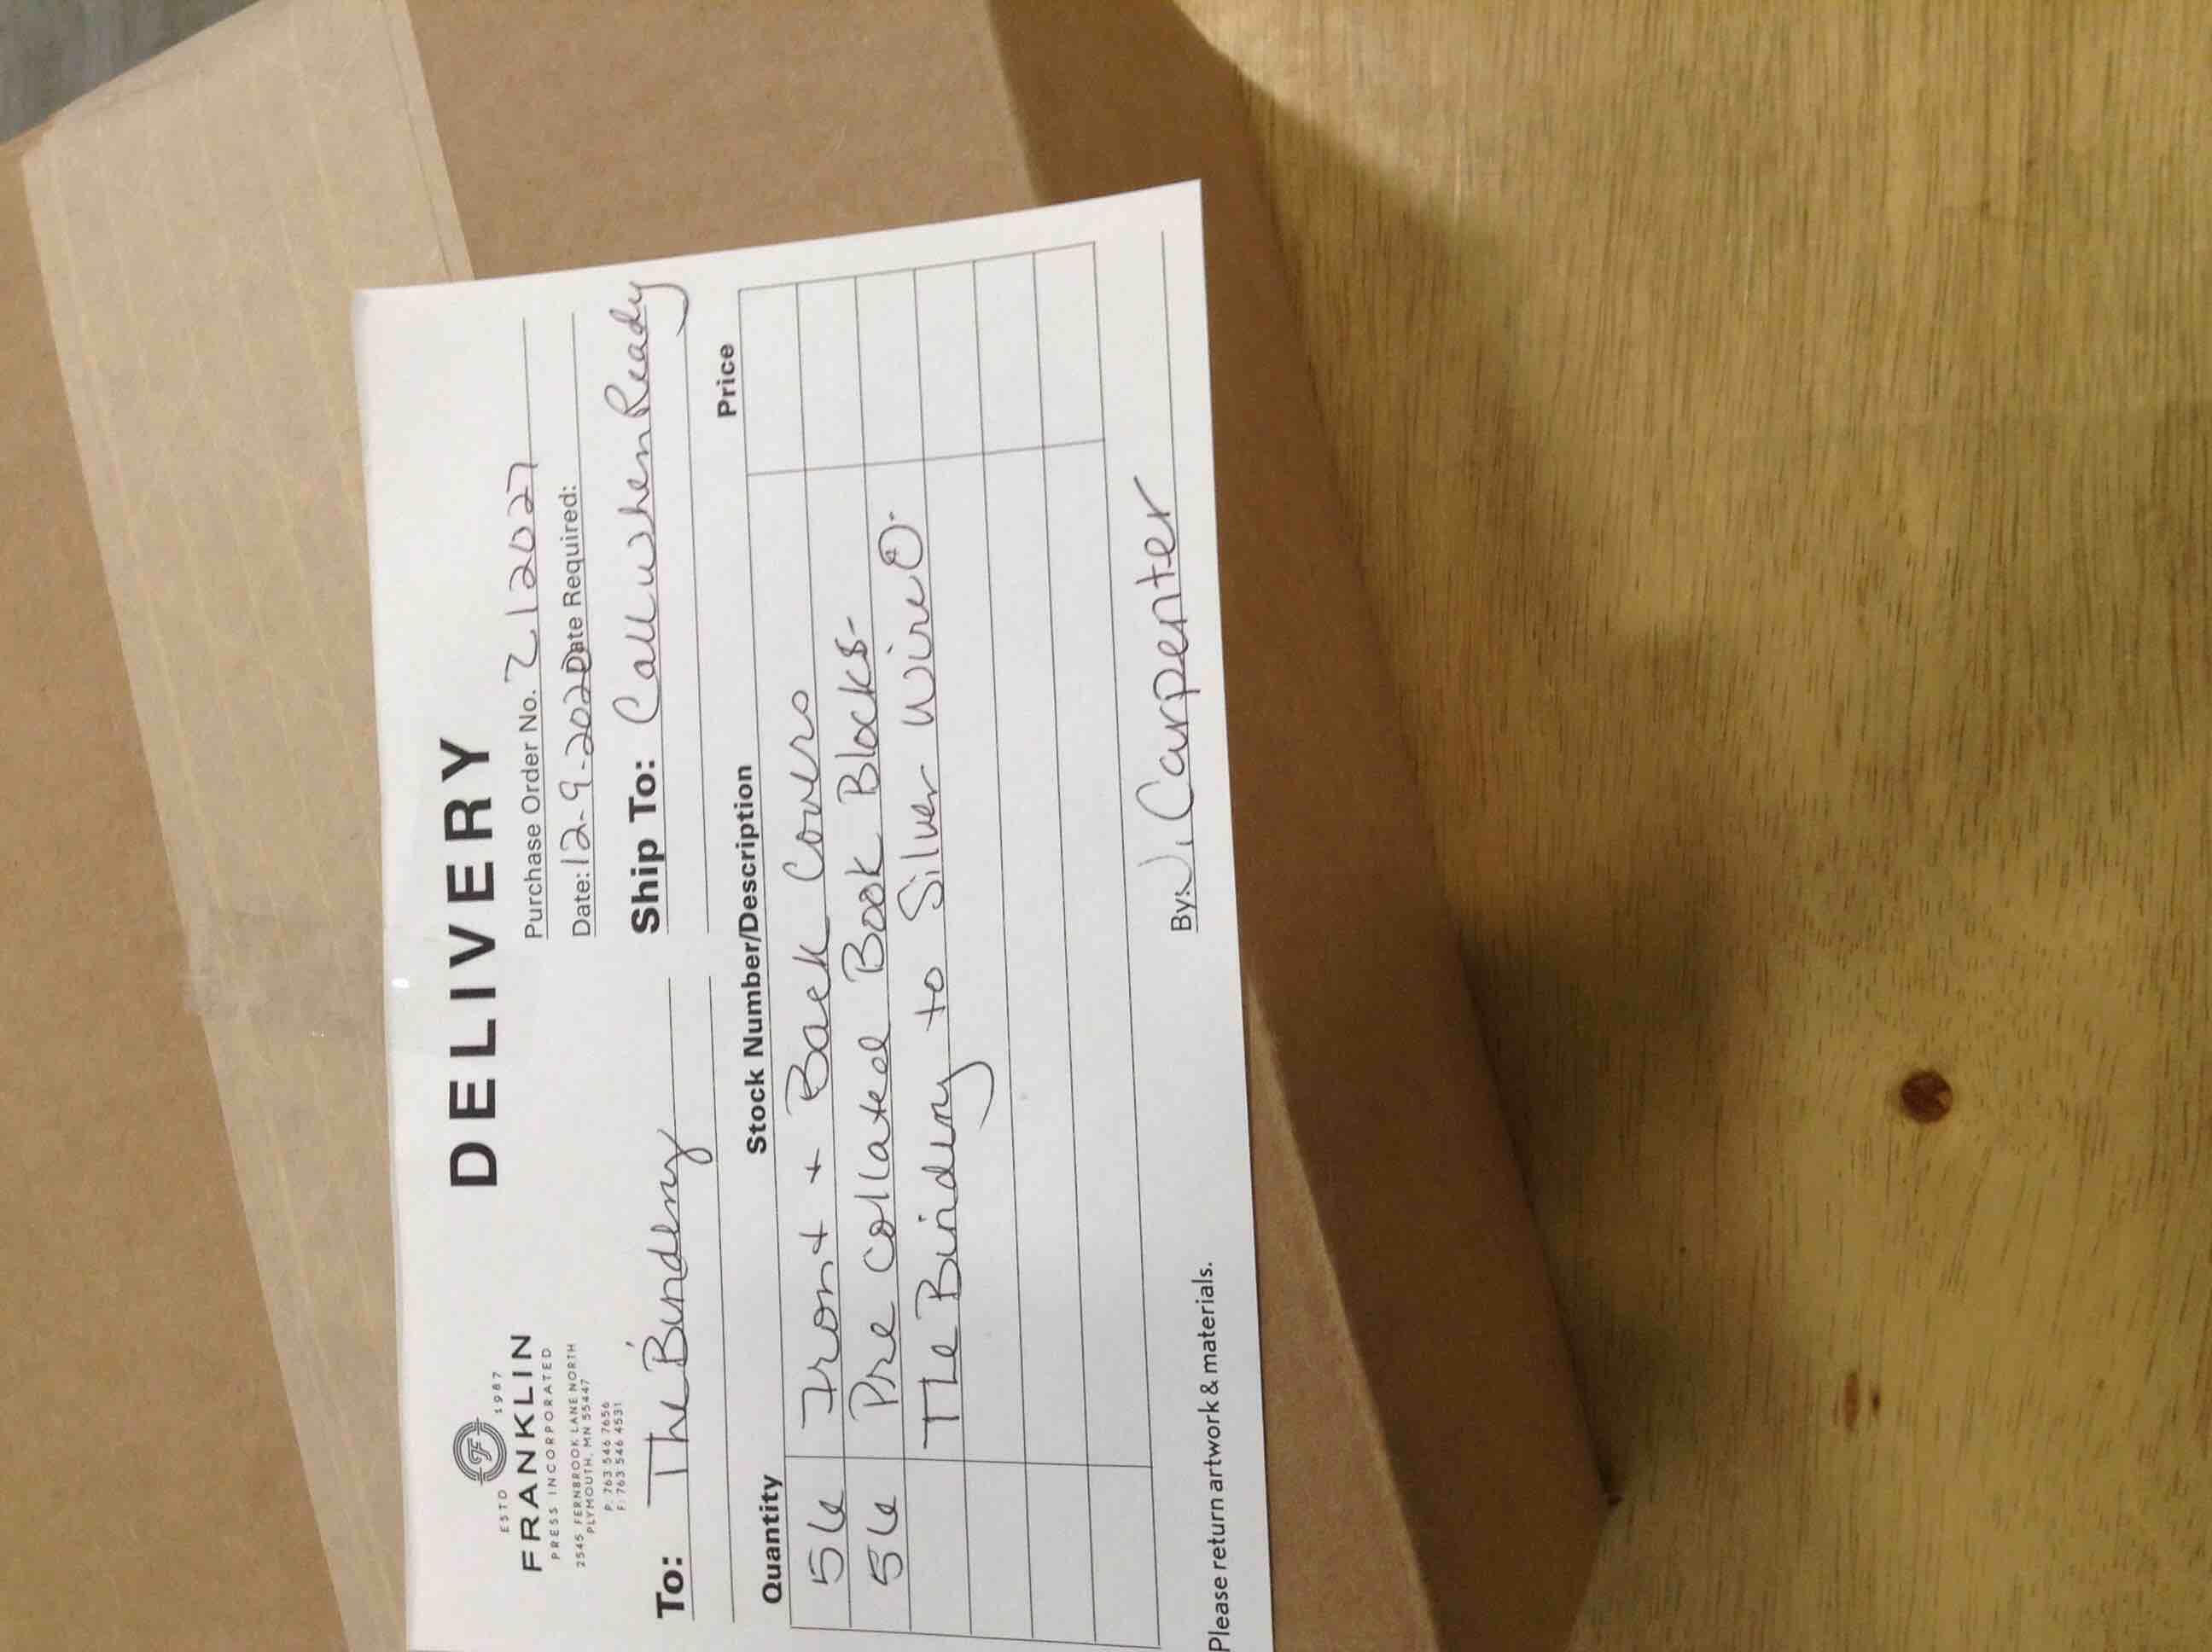 ESTD 1987
FRANKLIN
PRESS INCORPORATED
2545 FERNBROOK LANE NORTH
PLYMOUTH, MN 55447
P: 763 546 7656
F: 763 546 4531
DELIVERY
Purchase Order No. 212027
Date: 12-9-202 Date Required:
To: The Bindery
Ship To: Call when Ready
Quantity Stock Number/Description Price
56 Front + Back Covers
56 Pre Collated Book Blocks-
The Bindery to Silver Wire O.
Please return artwork & materials.
By: N. Carpenter